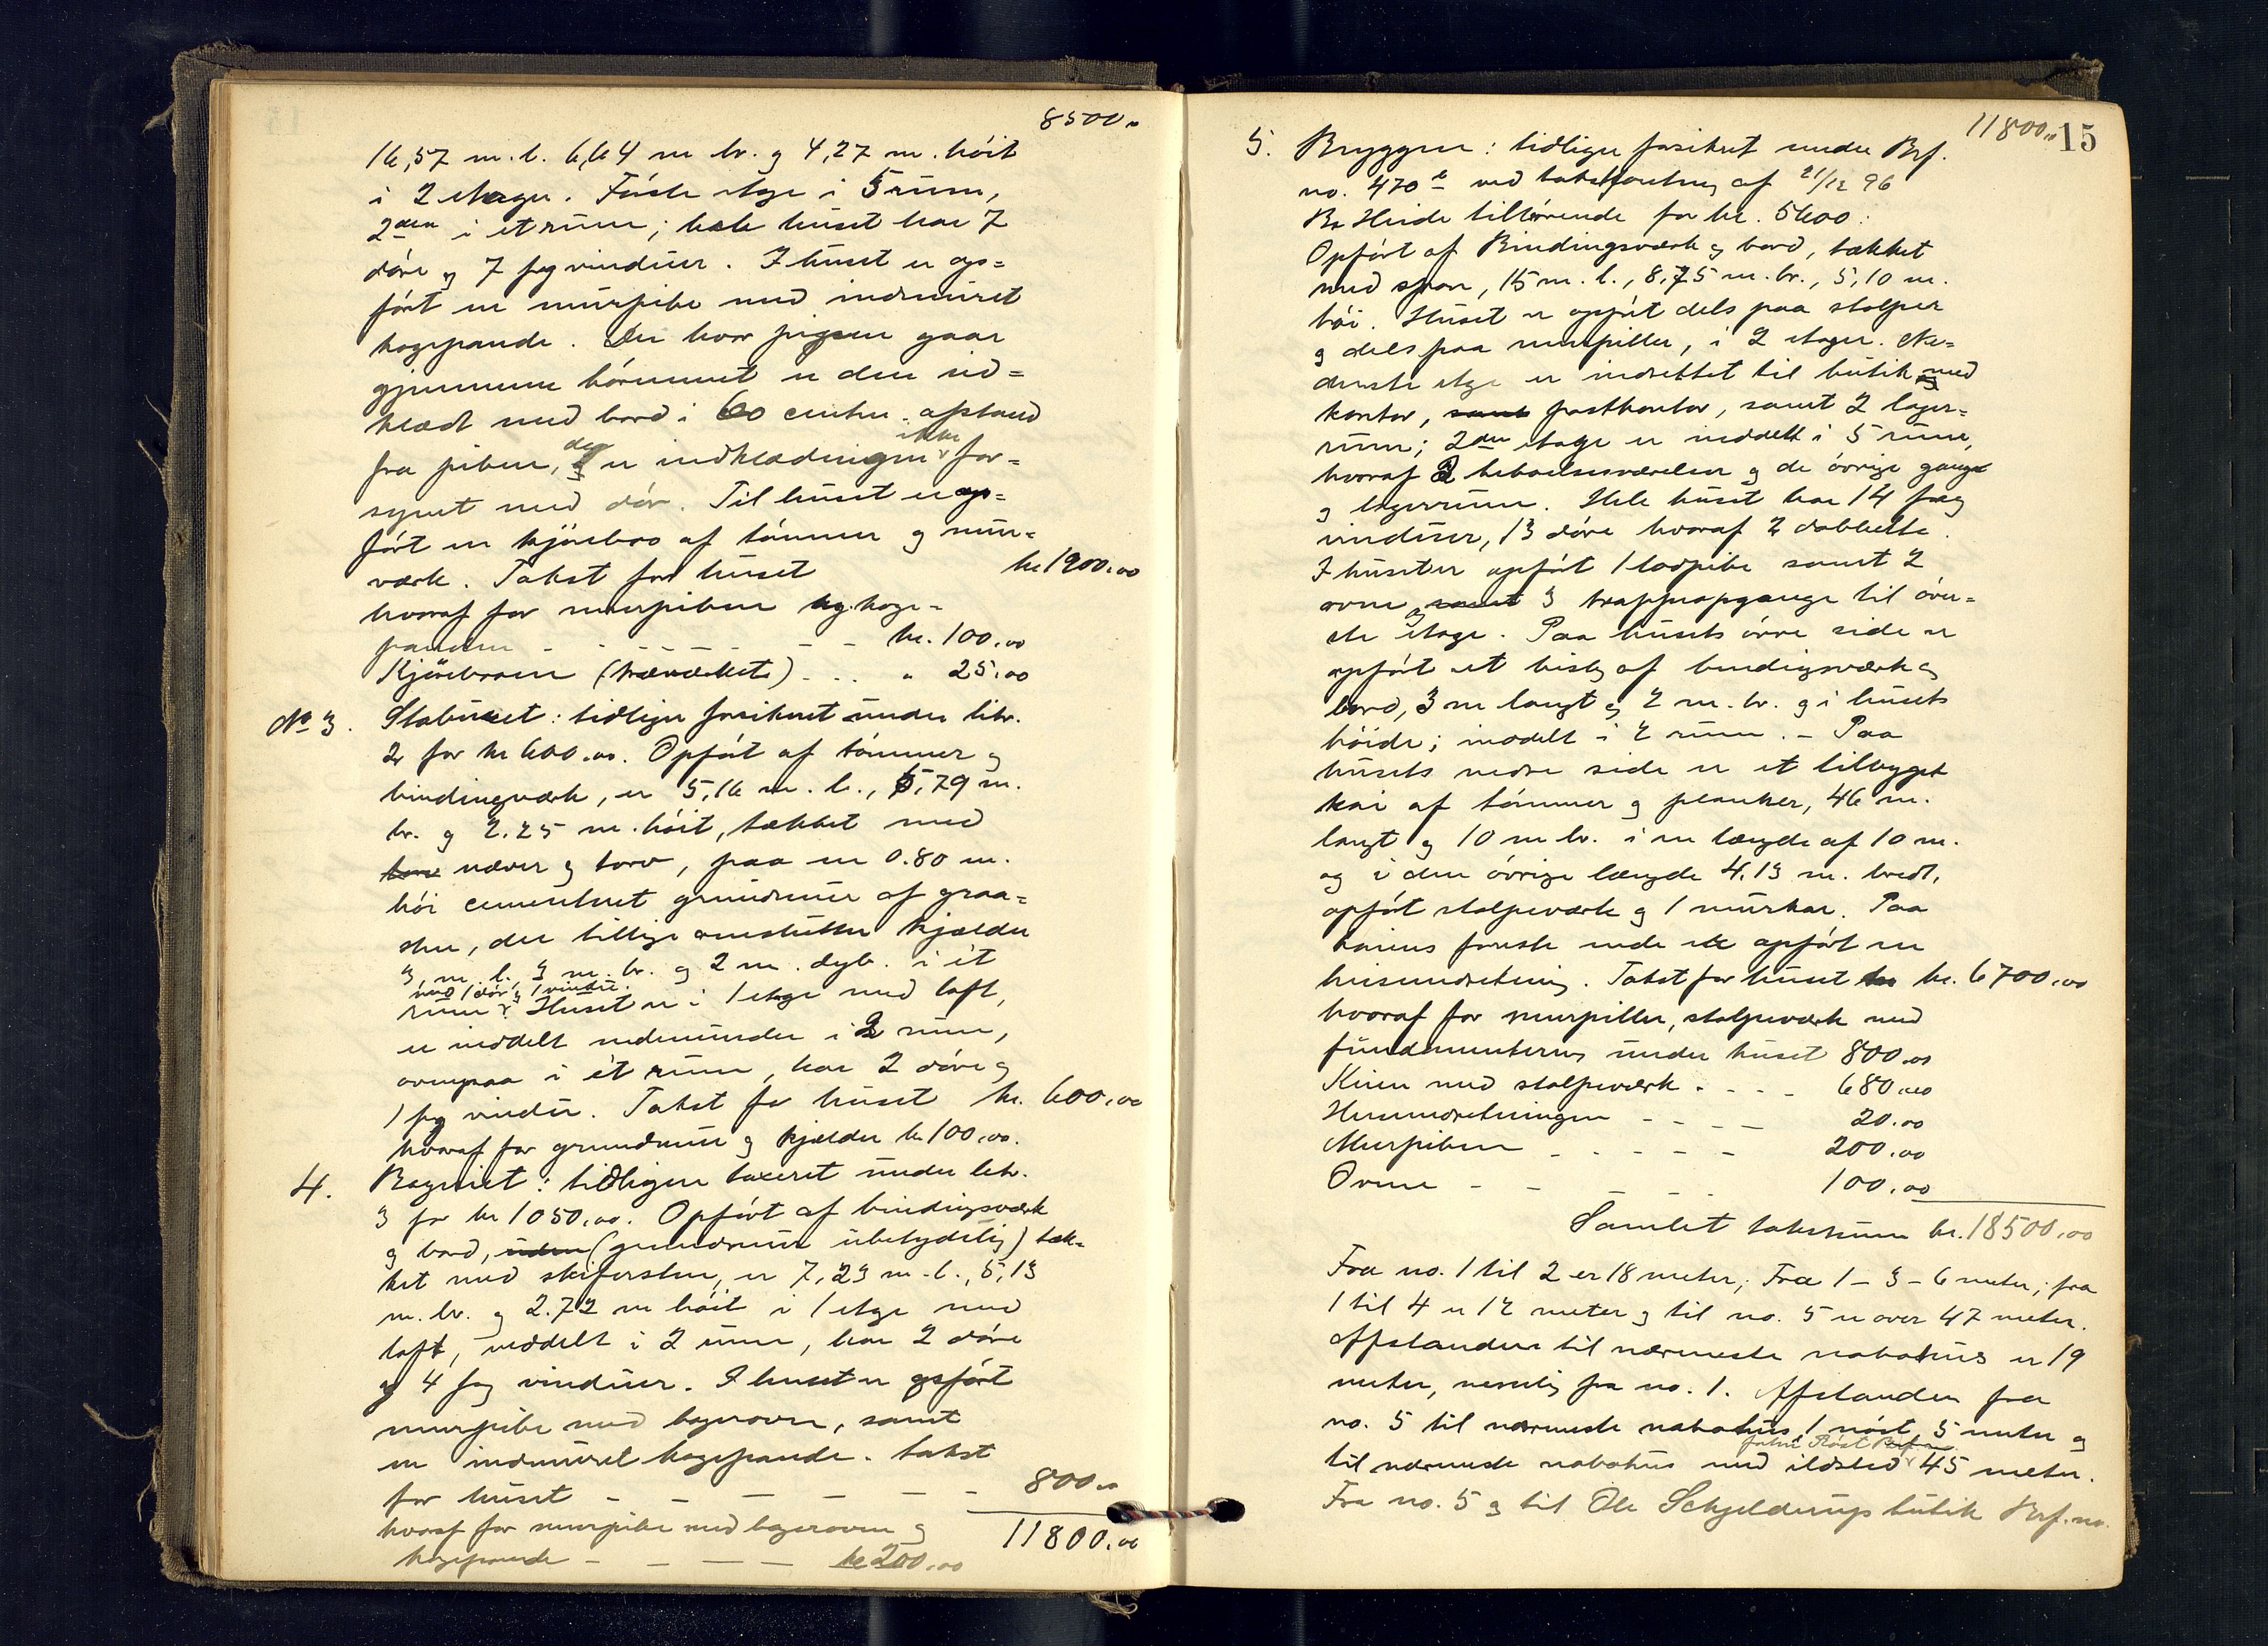 8500,,
16,57 m. l. 6,64 m br. og 4,27 m. höit
i 2 etager. Förste etge i 5 rum,
2den i et rum; hele huset har 7
döre og 7 fag vinduer. I huset er op=
fört en murpibe med indmuret
kogepande. Der hvor pigen gaar
gjennem bórummet er den ind=
klædt med bord i 60 centm. afstand
fra piben, der er indklædningen ikke for=
synet med dör. Til huset er op=
fört en kjörebro af tömmer og mur=
værk. Takst for huset kr 1900,00
hvoraf for murpiben og koge=
panden - - - - - - - kr. 100,00
Kjörebroen (træverket) - . . " 25,00
No 3. Staburet: tidligere forsikret under litr.
2 for kr 600,00. Opfört af tömmer og
bindingværk, er 5,16 m. l., 5,79 m.
br. og 2.25 m. höit, tækket med
torv næver og torv, paa en 0.80 m.
höi cementeret grundmur af graa=
sten, der tillige omslutter kjælder
3 m. l. 3 m. br. og 2 m. dyb. i ét
med 1 dör og 1 vindu.
rum. Huset er i 1 etage med loft,
er inddelt nedenunder i 2 rum,
ovenpaa i ét rum, har 2 döre og
1 fag vindu. Takst for huset kr. 600,00
hvoraf for grundmur og kjælder kr 100,00.
4. Bageriet: tidligere taxeret under litr.
3 for kr 1050,00. Opfört af bindingsværk
og bord, uden (grundmur ubetydelig) tæk-
ket med skifersten, er 7,23 m. l., 5,13
m. br. og 2.72 m höit i 1 etge med
loft, inddelt i 2 rum, har 2 döre
og 4 fag vinduer. I huset er opfört
murpibe med bagerovn, samt
en indmuret kogepande. Takst
for huset - - - - - - 800,,
hvoraf for murpibe med bagerovn og 11800,00
kogepande - - - - kr 200,00
11800,, 15
5. Bryggen: tidligere forsikret under Brf.
no. 470 b ved takstforretning af 21/12 96
tilhörende for kr. 5600.
Opfört af Bindingsværk og bord, tækket
med spon, 15 m. l., 8,75 m. br., 5,10 m.
höi. Huset er opfört dels paa stolper
og dels paa murpiller, i 2 etager. Ne=
derste etge er indrettet til butik og med
kontor, samt postkontor, samt 2 lager=
rum; 2den etage er inddelt i 5 rum,
hvoraf 2 beboelsesværelser og de övrige gange
og lagerrum. Hele huset har 14 fag
vinduer, 13 döre hvoraf 2 dobbelte.
I huset er opfört 1 lodpibe samt 2
ovne, samt og 3 trappeopgange til över=
ste etage. Paa husets övre side er
opfört et bislag af bindingsværk og
bord, 3 m langt og 2 m. br. og i husets
höide; inddelt i 2 rum. - Paa
husets nedre side er et tilbygget
kai af tömmer og planker, 46 m.
langt og 10 m br. i en længde af 10 m.
og i den övrige længde 4.13 m. bredt,
opfört stolpeværk og 1 murkar. Paa
kaiens forreste ende er opfört en
heiseindretning. Takst for huset kr. 6700,00
hvoraf for murpiller, stolpeværk med
fundamentering under huset 800,00
Kaien med stolpeværk - - - - 680,00
Heisindretningen - - - - 20.00
Murpiben - - - - - 200,00
Ovne - - - - - 100,00
Samlet takstsum kr. 18500,00
Fra no. 1 til 2 er 18 meter; Fra 1 - 3 - 6 meter; fra
1 til 4 er 12 meter og til no. 5 er over 47 meter.
Afstanden til nærmeste nabohus er 19
meter, nemlig fra no. 1. Afstanden fra
no. 5 til nærmeste nabohus, 1 nöst, 5 meter og
til nærmeste nabohus med ildsted 45 meter.
Fra no. 5 og til Ole Schjelderups butik Brf. no.